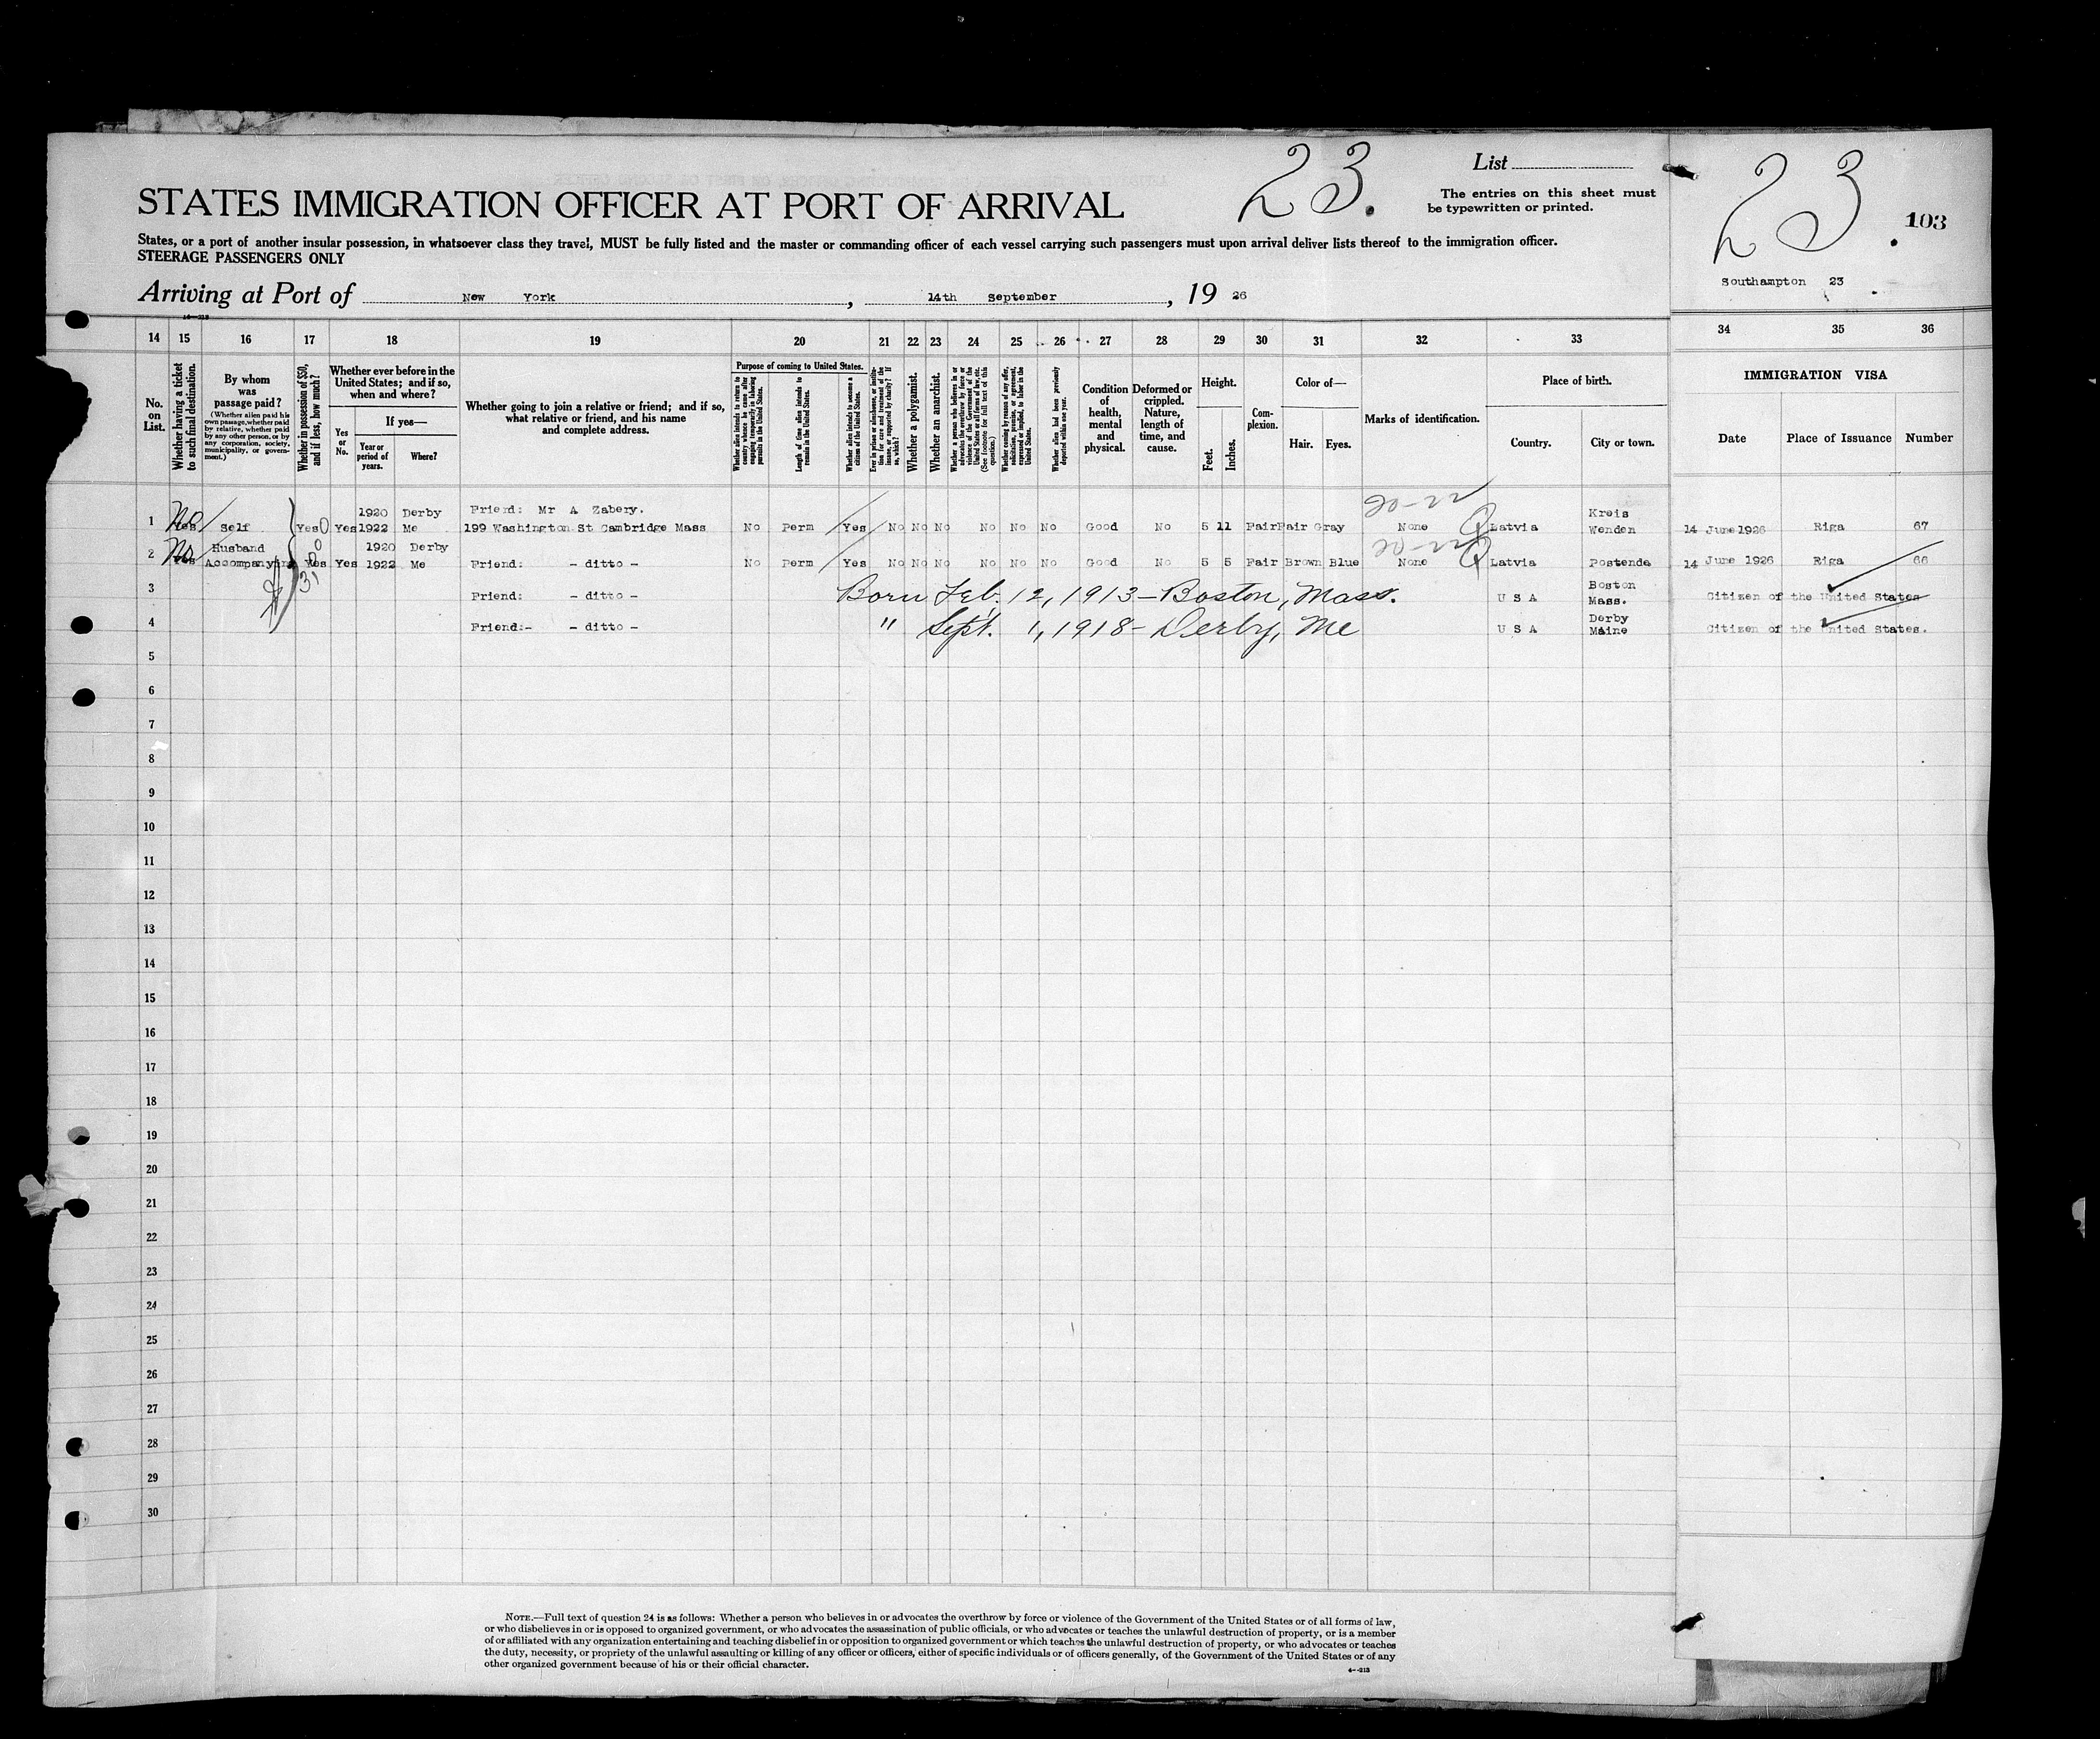 23.
List
STATES IMMIGRATION OFFICER AT PORT OF ARRIVAL
The entries on this sheet must
be typewritten or printed.
23.
103
States, or a port of another insular possession, in whatsoever class they travel, MUST be fully listed and the master or commanding officer of each vessel carrying such passengers must upon arrival deliver lists thereof to the immigration officer.
STEERAGE PASSENGERS ONLY
Southampton 23
Arriving at Port of New York, 14th September, 19 26
14 15 16 17 18 19 20 21 22 23 24 25 26 27 28 29 30 31 32 33 34 35 36
No. on List.
Whether having a ticket to such final destination.
By whom was passage paid?
(Whether alien paid his own passage, whether paid by relative, whether paid by any other person, or by any corporation, society, municipality, or government.)
Whether in possession of $50, and if less, how much?
Whether ever before in the United States; and if so, when and where?
Yes or No.
If yes—
Year or period of years.
Where?
Whether going to join a relative or friend; and if so, what relative or friend, and his name and complete address.
Purpose of coming to United States.
Whether alien intends to return to country whence he came after engaging temporarily in laboring pursuits in the United States.
Length of time alien intends to remain in the United States.
Whether alien intends to become a citizen of the United States.
Ever in prison or almshouse, or institution for care and treatment of the insane, or supported by charity? If so, which?
Whether a polygamist.
Whether an anarchist.
Whether a person who believes in or advocates the overthrow by force or violence of the Government of the United States or all forms of law, etc. (See footnote for full text of this question.)
Whether coming by reason of any offer, solicitation, promise, or agreement, expressed or implied, to labor in the United States.
Whether alien had been previously deported within one year.
Condition of health, mental and physical.
Deformed or crippled. Nature, length of time, and cause.
Height.
Feet.
Inches.
Complexion.
Color of—
Hair.
Eyes.
Marks of identification.
Place of birth.
Country.
City or town.
IMMIGRATION VISA
Date
Place of Issuance
Number
1920 Derby Friend: Mr A Zabery. Kreis
1 No Yes Self Yes Yes 1922 Me 199 Washington St Cambridge Mass No Perm Yes No No No No No No Good No 5 11 Fair Fair Gray None Latvia Wenden 14 June 1926 Riga 67
Husband 1920 Derby
2 No Yes Accompanying Yes Yes 1922 Me Friend: - ditto - No Perm Yes No No No No No No Good No 5 5 Fair Brown Blue None Latvia Postende 14 June 1926 Riga 66
3 Friend: - ditto - Born Feb. 12, 1913 — Boston, Mass. U S A Boston Mass. Citizen of the United States
4 Friend:- - ditto - " Sept. 1, 1918 - Derby, Me U S A Derby Maine Citizen of the United States.
5
6
7
8
9
10
11
12
13
14
15
16
17
18
19
20
21
22
23
24
25
26
27
28
29
30
NOTE.—Full text of question 24 is as follows: Whether a person who believes in or advocates the overthrow by force or violence of the Government of the United States or of all forms of law,
or who disbelieves in or is opposed to organized government, or who advocates the assassination of public officials, or who advocates or teaches the unlawful destruction of property, or is a member
of or affiliated with any organization entertaining and teaching disbelief in or opposition to organized government or which teaches the unlawful destruction of property, or who advocates or teaches
the duty, necessity, or propriety of the unlawful assaulting or killing of any officer or officers, either of specific individuals or of officers generally, of the Government of the United States or of any
other organized government because of his or their official character.